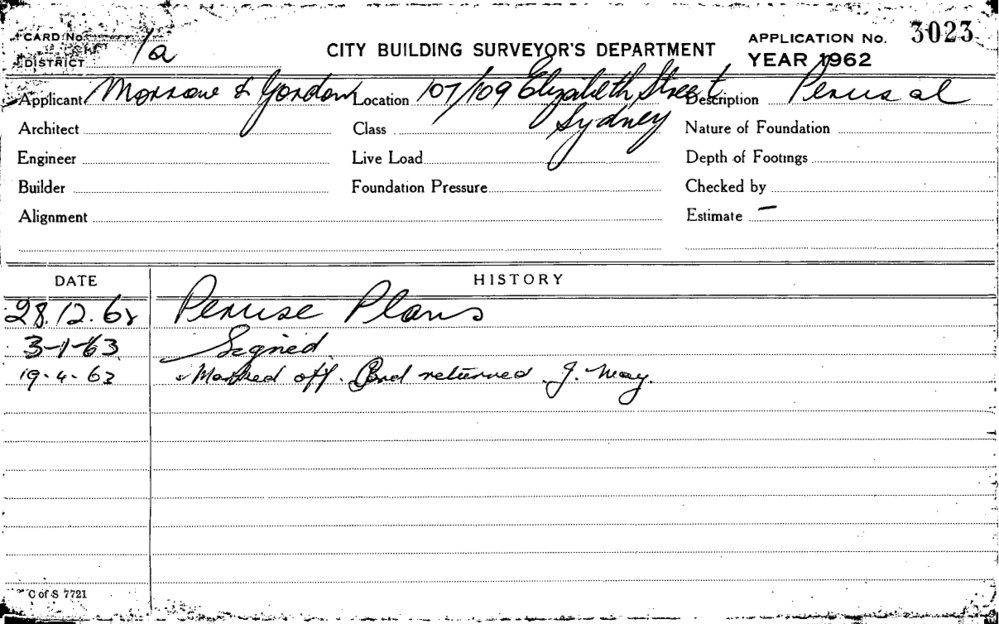 CARD No.
DISTRICT 1a
CITY BUILDING SURVEYOR'S DEPARTMENT
APPLICATION No. 3023
YEAR 1962
Applicant Morrow & Gordon Location 107/109 Elizabeth Street Sydney Description Perusal
Architect Class Nature of Foundation
Engineer Live Load Depth of Footings
Builder Foundation Pressure Checked by
Alignment Estimate –
DATE HISTORY
28.12.62 Peruse Plans
3-1-63 Signed
19-4-63 Marked off. and returned J. May.
C of S 7721